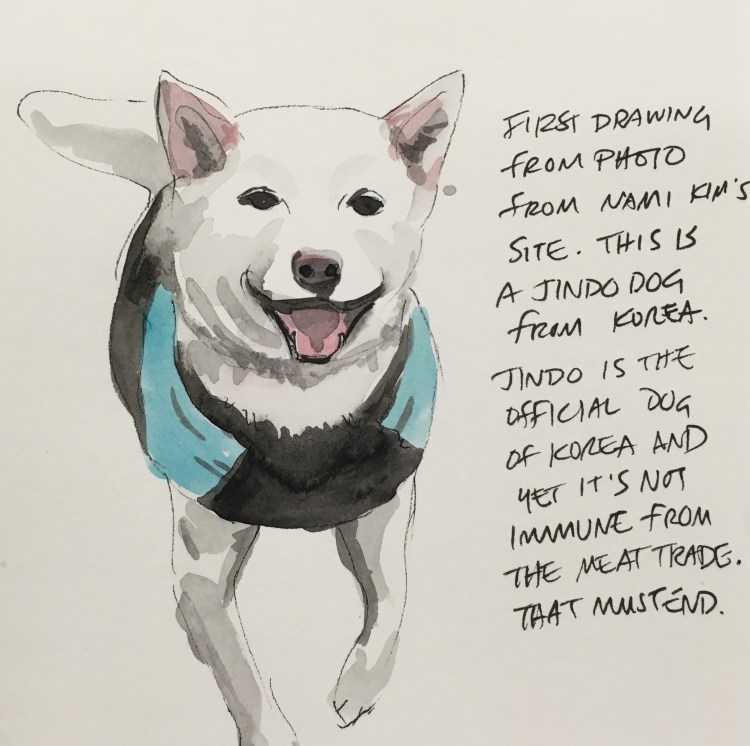 FIRST DRAWING
FROM PHOTO
FROM NAMI KIM'S
SITE. THIS IS
A JINDO DOG
FROM KOREA.
JINDO IS THE
OFFICIAL DOG
OF KOREA AND
YET IT'S NOT
IMMUNE FROM
THE MEAT TRADE.
THAT MUST END.